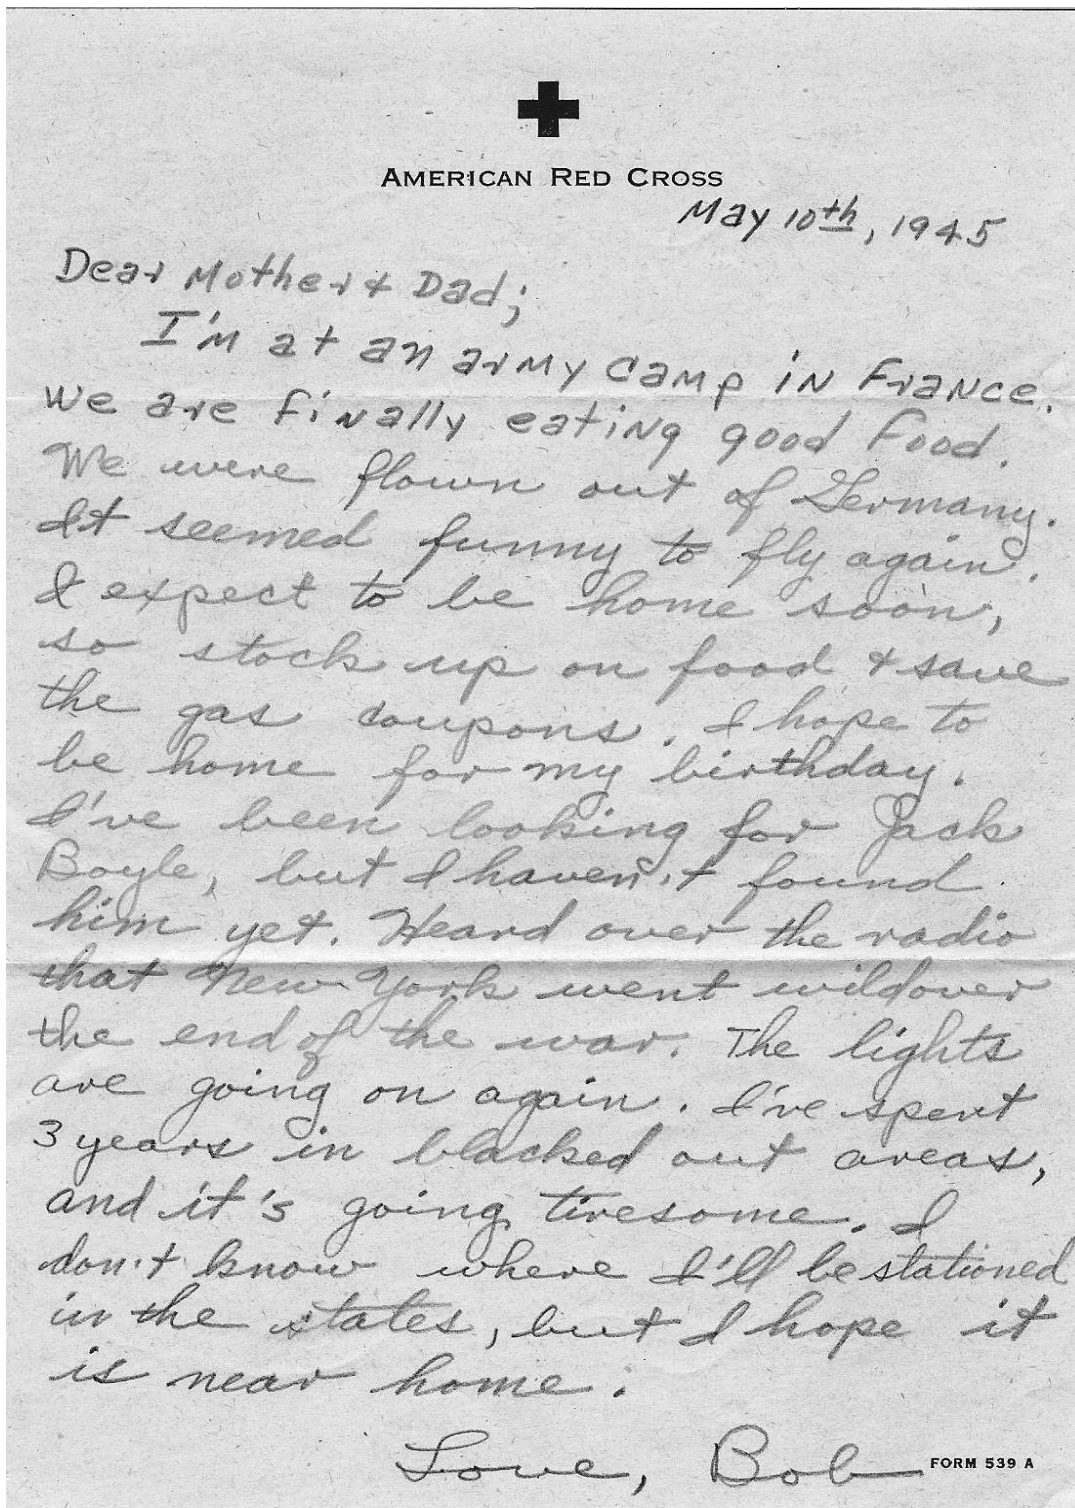 AMERICAN RED CROSS
May 10th, 1945
Dear Mother & Dad;
I'm at an army camp in France.
We are finally eating good food.
We were flown out of Germany.
It seemed funny to fly again.
I expect to be home soon,
so stock up on food & save
the gas coupons. I hope to
be home for my birthday.
I've been looking for Jack
Boyle, but I haven't found
him yet. Heard over the radio
that New York went wild over
the end of the war. The lights
are going on again. I've spent
3 years in blacked out areas,
and it's going tiresome. I
don't know where I'll be stationed
in the states, but I hope it
is near home.
Love, Bob
FORM 539 A